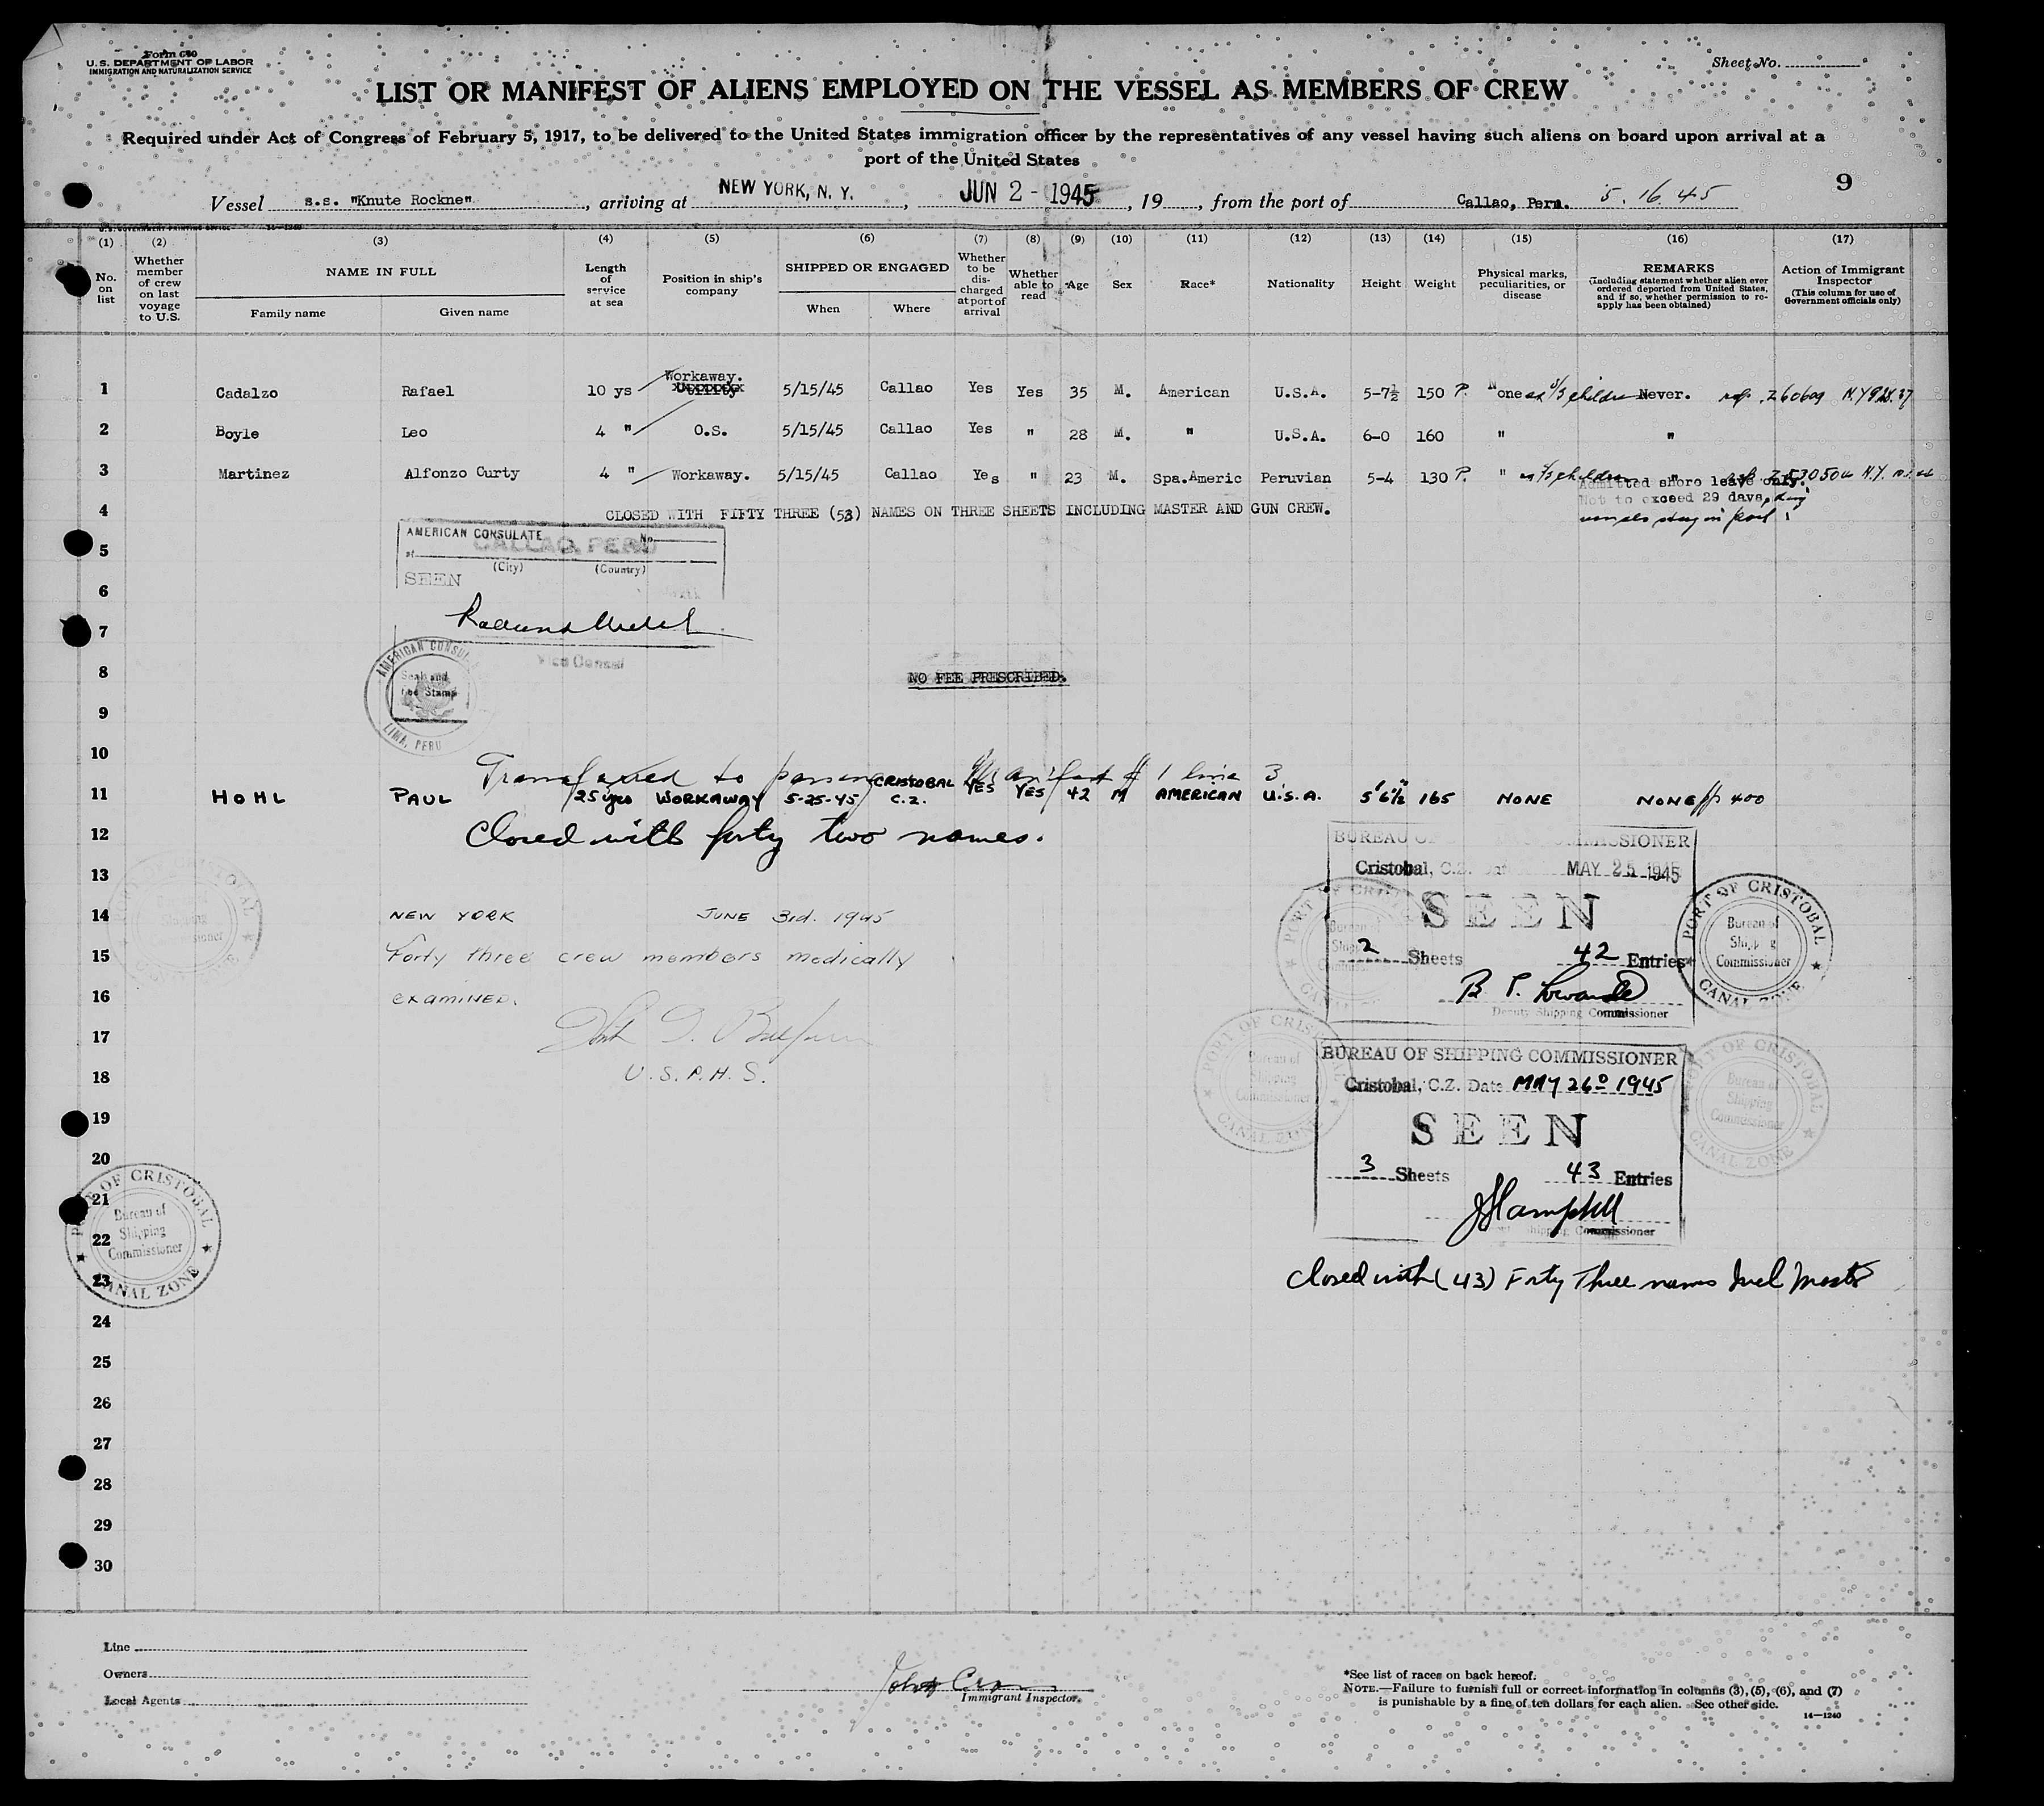 Form 680
U.S. DEPARTMENT OF LABOR
IMMIGRATION AND NATURALIZATION SERVICE
Sheet No.
LIST OR MANIFEST OF ALIENS EMPLOYED ON THE VESSEL AS MEMBERS OF CREW
Required under Act of Congress of February 5, 1917, to be delivered to the United States immigration officer by the representatives of any vessel having such aliens on board upon arrival at a
port of the United States
9
Vessel s.s. "Knute Rockne", arriving at NEW YORK, N. Y., JUN 2 - 1945, 19, from the port of Callao, Peru. 5.16.45
(1) (2) (3) (4) (5) (6) (7) (8) (9) (10) (11) (12) (13) (14) (15) (16) (17)
No. on list
Whether member of crew on last voyage to U.S.
NAME IN FULL
Family name Given name
Length of service at sea
Position in ship's company
SHIPPED OR ENGAGED
When Where
Whether to be discharged at port of arrival
Whether able to read
Age Sex Race* Nationality Height Weight
Physical marks, peculiarities, or disease
REMARKS
(Including statement whether alien ever ordered deported from United States, and if so, whether permission to reapply has been obtained)
Action of Immigrant Inspector
(This column for use of Government officials only)
Workaway.
1 Cadalzo Rafael 10 ys 5/15/45 Callao Yes Yes 35 M. American U.S.A. 5-7½ 150 P. None Never.
2 Boyle Leo 4 " O.S. 5/15/45 Callao Yes " 28 M. " U.S.A. 6-0 160 " "
3 Martinez Alfonzo Curty 4 " Workaway. 5/15/45 Callao Yes " 23 M. Spa.Americ Peruvian 5-4 130 P. " "
Admitted shore leave only.
Not to exceed 29 days,
4 CLOSED WITH FIFTY THREE (53) NAMES ON THREE SHEETS INCLUDING MASTER AND GUN CREW.
AMERICAN CONSULATE No.
at CALLAO, PERU
5
(City) (Country)
SEEN
6
7
Vice Consul
AMERICAN CONSUL
Seal and
Fee Stamp
LIMA, PERU
8 NO FEE PRESCRIBED.
9
10
Transferred to passenger manifest # 1 line 3
11 HOHL PAUL 25 yrs WORKAWAY 5-25-45 CRISTOBAL C.Z. YES YES 42 M AMERICAN U.S.A. 5'6½" 165 NONE NONE
12 Closed with forty two names.
BUREAU OF SHIPPING COMMISSIONER
13 Cristobal, C.Z. Date MAY 25 1945
SEEN
14 NEW YORK JUNE 3rd. 1945
15 Forty three crew members medically
2 Sheets 42 Entries
PORT OF CRISTOBAL
Bureau of
Shipping
Commissioner
CANAL ZONE
16 examined.
Deputy Shipping Commissioner
17
18 U.S.P.H.S.
BUREAU OF SHIPPING COMMISSIONER
Cristobal, C.Z. Date MAY 26 1945
PORT OF CRISTOBAL
Bureau of
Shipping
Commissioner
CANAL ZONE
19
SEEN
20
3 Sheets 43 Entries
21
Shipping Commissioner
PORT OF CRISTOBAL
Bureau of
Shipping
Commissioner
CANAL ZONE
22
23 Closed with (43) Forty Three names Incl Master
24
25
26
27
28
29
30
Line
Owners
Local Agents
Immigrant Inspector.
*See list of races on back hereof.
NOTE.—Failure to furnish full or correct information in columns (3), (5), (6), and (7)
is punishable by a fine of ten dollars for each alien. See other side.
14—1240